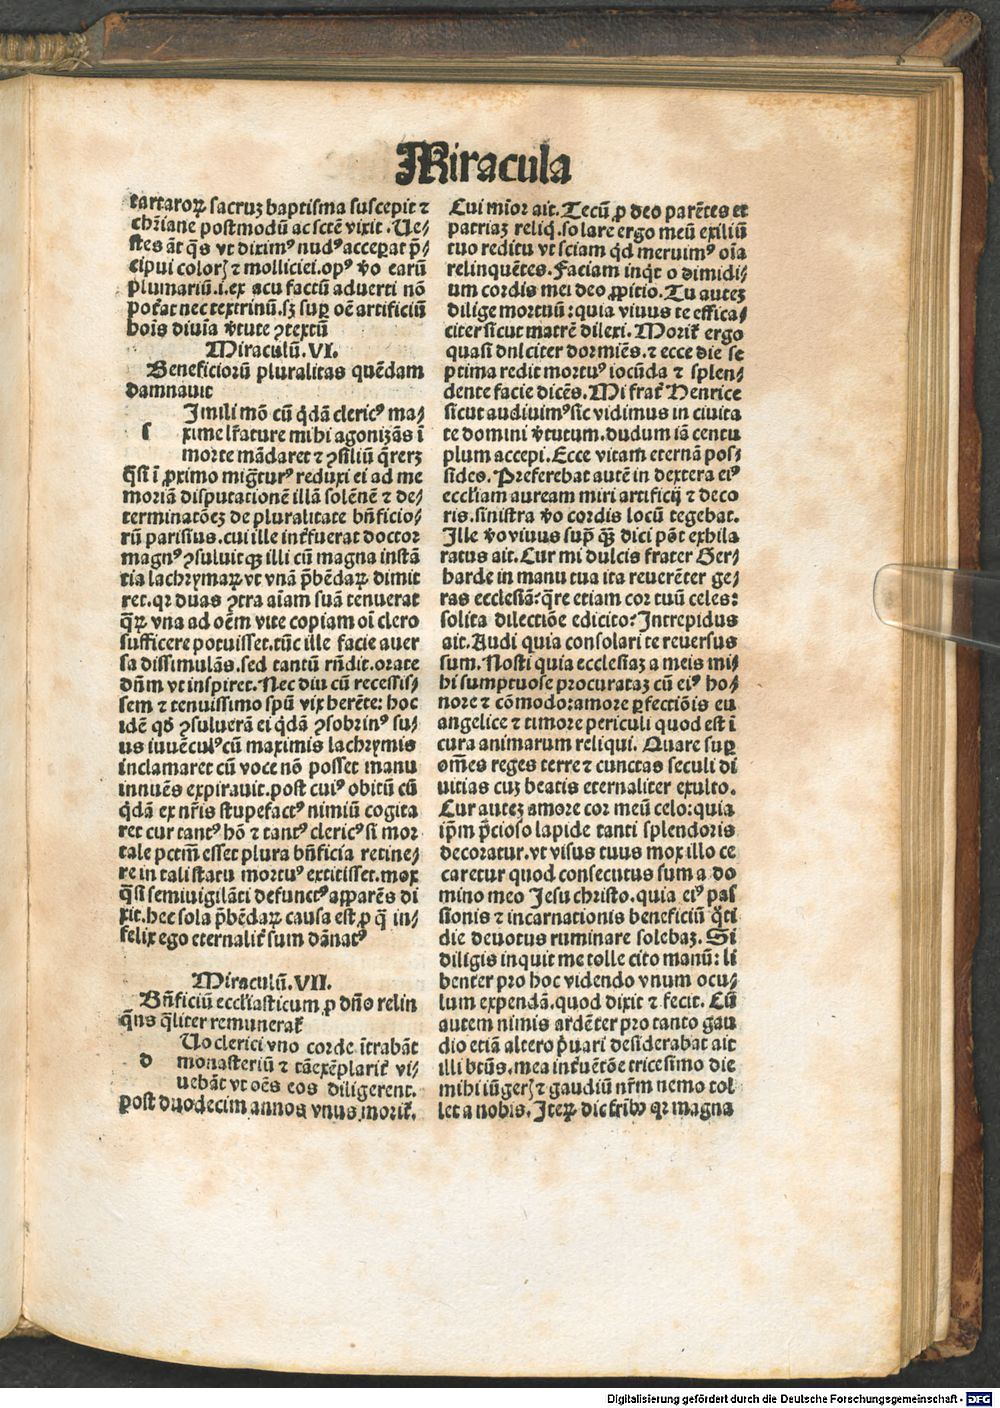 Miracula
tartaroꝝ sacruꝫ baptisma suscepit ⁊
chr̃iane postmodū ac sctẽ vixit. Ue⸗
stes āt q̄s vt diximꝰ nudꝰ acceperat p̄⸗
cipui coloꝝ ⁊ molliciei. opꝰ ṽo earū
plumariū .i. ex acu factū aduerti nō
poterat nec textrinū. sꝫ suꝑ oē artificiū
hoīs diuīa v̄tute ꝯtextū
Miraculū. VI.
Beneficiorū pluralitas quēdam
damnauit
s
Imili mō cū q̇dā clericꝰ ma⸗
xime lr̃ature mihi agonizās ī
morte mādaret ⁊ ꝯsiliū q̄rerꝫ
q̄si ī ꝓximo migr̄turꝰ reduxi ei ad me
moriā disputationē illā solēnē ⁊ de⸗
terminatōeꝫ de pluralitate bn̄ficio⸗
rū parisius. cui ille int̄fuerat doctor
magnꝰ ꝯsuluitqꝫ illi cū magna instā
tia lachrymaꝝ vt vnā p̄bēdaꝝ dimit
ret. qꝛ duas ꝯtra aīam suā tenuerat
q̄ꝝ vna ad oēm vite copiam oī clero
sufficere potuisset. tūc ille facie auer
sa dissimulās. sed tantū rn̄dit. orate
dn̄m vt inspiret. Nec diu cū recessis⸗
sem ⁊ tenuissimo spū vix hereret: hoc
idē qd̄ ꝯsuluerā ei q̇dā ꝯsobrinꝰ su⸗
us iuuēculꝰ cū maximis lachrymis
inclamaret cū voce nō posset manu
innuēs expirauit. post cuiꝰ obitū cū
q̇dā ex nr̄is stupefactꝰ nimiū cogita
ret cur tantꝰ hō ⁊ tantꝰ clericꝰ si mor
tale pctm̄ esset plura bn̄ficia retine⸗
re in tali statu mortuꝰ extitisset. mox
q̄si semiuigilāti defunctꝰ apparēs di
xit. hec sola p̄bēdaꝝ causa est ꝓ q̄ in⸗
felix ego eternalit̄ sum dānatꝰ
Miraculū. VII.
Bn̄ficiū eccl̓iasticum ꝓ dn̄o relin
q̄ns q̄liter remunerat̄
d
Uo clerici vno corde ītrabāt
monasteriū ⁊ tā exēplarit̄ vi⸗
uebāt vt oēs eos diligerent.
post duodecim annos vnus morit̄.
Cui mīor ait. Tecū ꝓ deo parētes et
patriaꝫ reliq̇. solare ergo meū exiliū
tuo reditu vt sciam q̇d meruimꝰ oīa
relinquētes. Faciam inq̇t o dimidi⸗
um cordis mei deo ꝓpitio. Tu auteꝫ
dilige mortuū: quia viuus te effica⸗
citer sicut matrē dilexi. Morit̄ ergo
quasi dulciter dormiēs. ⁊ ecce die se
ptima redit mortuꝰ iocūda ⁊ splen⸗
dente facie dicēs. Mi frat̄ Henrice
sicut audiuimꝰ sic vidimus in ciuita
te domini v̄tutum. dudum iā centu
plum accepi. Ecce vitam eternā pos⸗
sides. Preferebat autē in dextera eiꝰ
eccl̓iam auream miri artificij ⁊ deco
ris. sinistra ṽo cordis locū tegebat.
Ille ṽo viuus supra q̄ꝫ dici pōt exhila
ratus ait. Cur mi dulcis frater Ger⸗
harde in manu tua ita reuerēter ge⸗
ras ecclesiā: q̄re etiam cor tuū celes:
solita dilectiōe edicito: Intrepidus
ait. Audi quia consolari te reuersus
sum. Nosti quia ecclesiaꝫ a meis mi⸗
hi sumptuose procurataꝫ cū eiꝰ ho⸗
nore ⁊ cōmodo: amore ꝑfectiōis eu
angelice ⁊ timore periculi quod est ī
cura animarum reliqui. Quare suꝑ
om̄es reges terre ⁊ cunctas seculi di
uitias cuꝫ beatis eternaliter exulto.
Cur auteꝫ amore cor meū celo: quia
ip̄m p̄cioso lapide tanti splendoris
decoratur. vt visus tuus mox illo ce
caretur quod consecutus sum a do
mino meo Jesu christo. quia eiꝰ pas
sionis ⁊ incarnationis beneficiū q̊ti
die deuotus ruminare solebaꝫ. Si
diligis inquit me tolle cito manū: li
benter pro hoc videndo vnum ocu⸗
lum expendā. quod dixit ⁊ fecit. Cū
autem nimis ardēter pro tanto gau
dio etiā altero p̄uari desiderabat ait
illi btūs. mea inf̄uētōe tricesimo die
mihi iūgerꝭ ⁊ gaudiū nr̄m nemo tol
let a nobis. Iteꝝ dic frībꝰ qꝛ magna
Digitalisierung gefördert durch die Deutsche Forschungsgemeinschaft - DFG